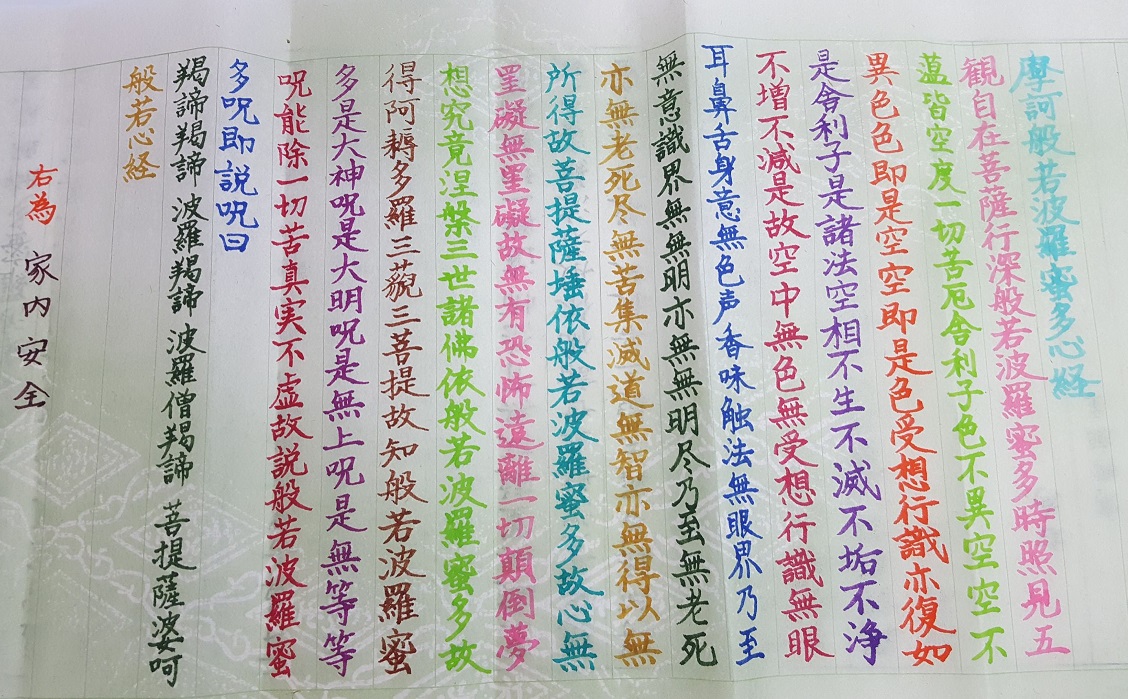 摩訶般若波羅蜜多心経
観自在菩薩行深般若波羅蜜多時照見五
蘊皆空度一切苦厄舎利子色不異空空不
異色色即是空空即是色受想行識亦復如
是舎利子是諸法空相不生不滅不垢不浄
不増不減是故空中無色無受想行識無眼
耳鼻舌身意無色声香味触法無眼界乃至
無意識界無無明亦無無明尽乃至無老死
亦無老死尽無苦集滅道無智亦無得以無
所得故菩提薩埵依般若波羅蜜多故心無
罣礙無罣礙故無有恐怖遠離一切顛倒夢
想究竟涅槃三世諸佛依般若波羅蜜多故
得阿耨多羅三藐三菩提故知般若波羅蜜
多是大神呪是大明呪是無上呪是無等等
呪能除一切苦真実不虚故説般若波羅蜜
多呪即説呪曰
羯諦羯諦 波羅羯諦 波羅僧羯諦 菩提薩婆呵
般若心経
右為 家内安全